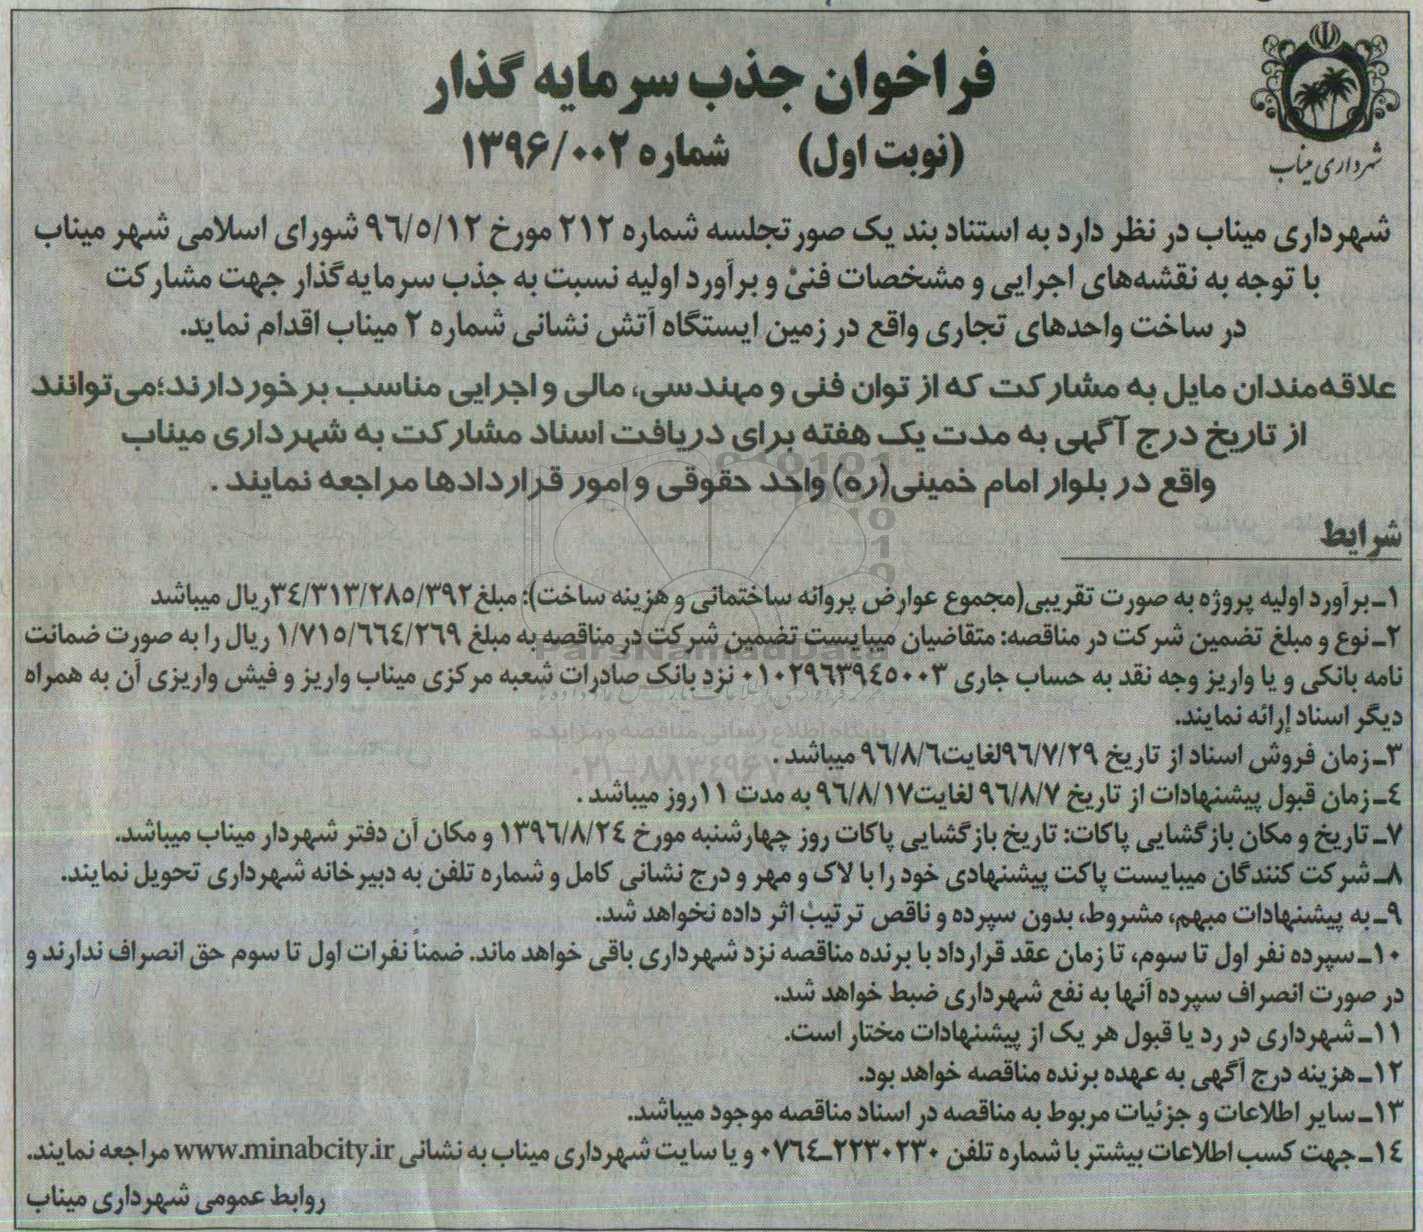 شهرداری میناب
فراخوان جذب سرمایه گذار
(نوبت اول) شماره ۱۳۹۶/۰۰۲
شهرداری میناب در نظر دارد به استناد بند یک صورتجلسه شماره ۲۱۲ مورخ ۹۶/۵/۱۲ شورای اسلامی شهر میناب
با توجه به نقشه‌های اجرایی و مشخصات فنی و برآورد اولیه نسبت به جذب سرمایه‌گذار جهت مشارکت
در ساخت واحدهای تجاری واقع در زمین ایستگاه آتش نشانی شماره ۲ میناب اقدام نماید.
علاقه‌مندان مایل به مشارکت که از توان فنی و مهندسی، مالی و اجرایی مناسب برخوردارند؛می‌توانند
از تاریخ درج آگهی به مدت یک هفته برای دریافت اسناد مشارکت به شهرداری میناب
واقع در بلوار امام خمینی(ره) واحد حقوقی و امور قراردادها مراجعه نمایند .
شرایط
۱ـ برآورد اولیه پروژه به صورت تقریبی(مجموع عوارض پروانه ساختمانی و هزینه ساخت): مبلغ۳۴/۳۱۳/۲۸۵/۳۹۲ریال میباشد
۲ـ نوع و مبلغ تضمین شرکت در مناقصه: متقاضیان میبایست تضمین شرکت در مناقصه به مبلغ ۱/۷۱۵/۶۶۴/۲۶۹ ریال را به صورت ضمانت
نامه بانکی و یا واریز وجه نقد به حساب جاری ۰۱۰۲۹۶۳۹۴۵۰۰۳ نزد بانک صادرات شعبه مرکزی میناب واریز و فیش واریزی آن به همراه
دیگر اسناد إرائه نمایند.
۳ـ زمان فروش اسناد از تاریخ ۹۶/۷/۲۹لغایت۹۶/۸/۶ میباشد .
۴ـ زمان قبول پیشنهادات از تاریخ ۹۶/۸/۷ لغایت۹۶/۸/۱۷ به مدت ۱۱روز میباشد .
۷ـ تاریخ و مکان بازگشایی پاکات: تاریخ بازگشایی پاکات روز چهارشنبه مورخ ۱۳۹۶/۸/۲۴ و مکان آن دفتر شهردار میناب میباشد.
۸ـ شرکت کنندگان میبایست پاکت پیشنهادی خود را با لاک و مهر و درج نشانی کامل و شماره تلفن به دبیرخانه شهرداری تحویل نمایند.
۹ـ به پیشنهادات مبهم، مشروط، بدون سپرده و ناقص ترتیب اثر داده نخواهد شد.
۱۰ـ سپرده نفر اول تا سوم، تا زمان عقد قرارداد با برنده مناقصه نزد شهرداری باقی خواهد ماند. ضمناً نفرات اول تا سوم حق انصراف ندارند و
در صورت انصراف سپرده آنها به نفع شهرداری ضبط خواهد شد.
۱۱ـ شهرداری در رد یا قبول هر یک از پیشنهادات مختار است.
۱۲ـ هزینه درج آگهی به عهده برنده مناقصه خواهد بود.
۱۳ـ سایر اطلاعات و جزئیات مربوط به مناقصه در اسناد مناقصه موجود میباشد.
۱۴ـ جهت کسب اطلاعات بیشتر با شماره تلفن ۲۲۳۰۲۳۰ـ۰۷۶۴ و یا سایت شهرداری میناب به نشانی www.minabcity.ir مراجعه نمایند.
روابط عمومی شهرداری میناب
ParsNamadData
پایگاه اطلاع رسانی مناقصه و مزایده